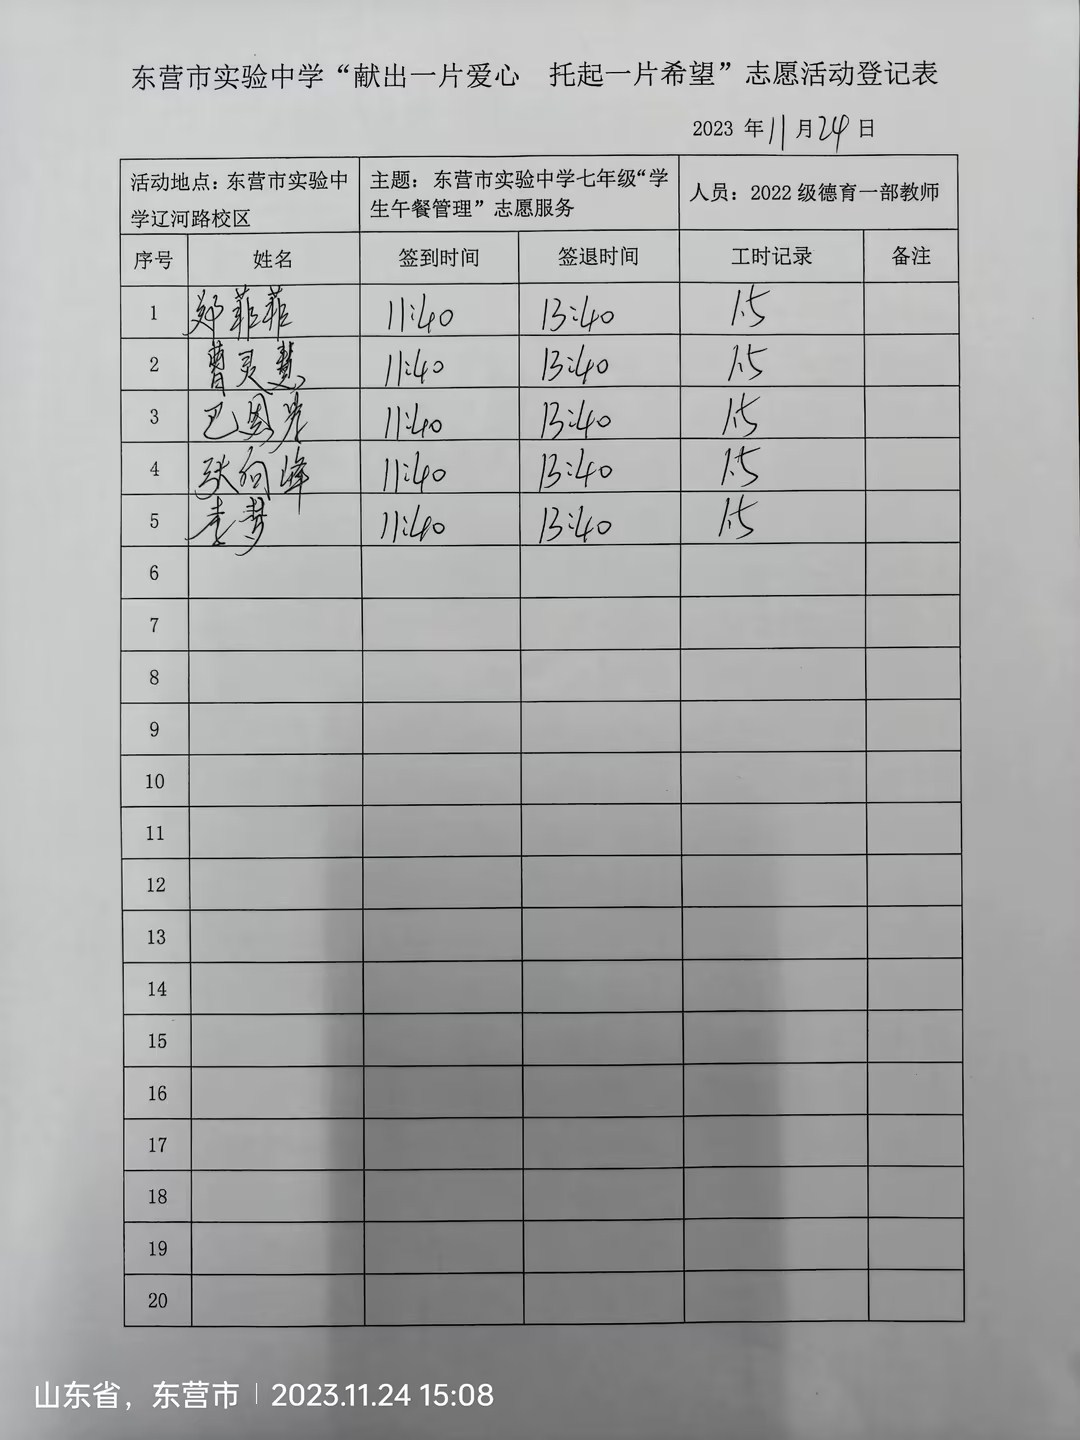 东营市实验中学“献出一片爱心 托起一片希望”志愿活动登记表
2023 年 11 月 24 日
活动地点：东营市实验中学辽河路校区 主题：东营市实验中学七年级“学生午餐管理”志愿服务 人员：2022 级德育一部教师
序号 姓名 签到时间 签退时间 工时记录 备注
1 郑菲菲 11:40 13:40 1.5
2 曹灵慧 11:40 13:40 1.5
3 巴恩光 11:40 13:40 1.5
4 张向峰 11:40 13:40 1.5
5 李梦 11:40 13:40 1.5
6
7
8
9
10
11
12
13
14
15
16
17
18
19
20
山东省，东营市 | 2023.11.24 15:08